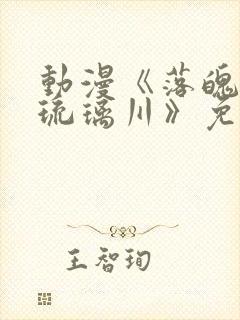 動漫《落魄
琉璃川》免
王智珣